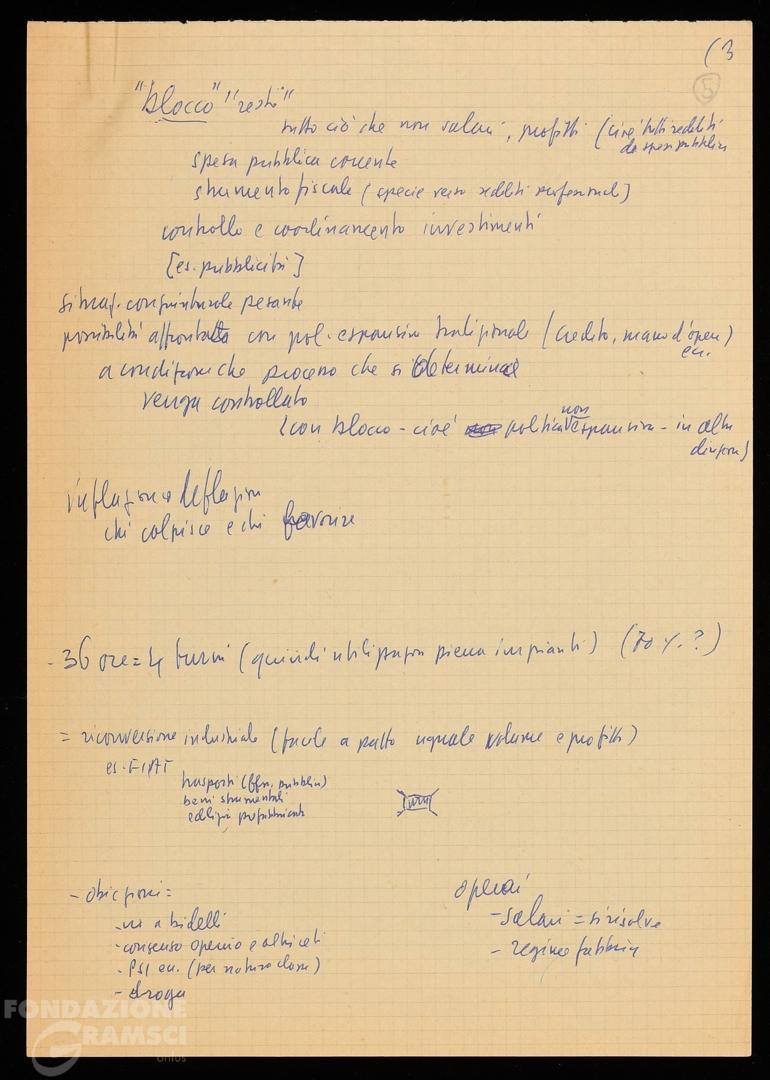 (3
5
"blocco" "resti"
tutto ciò che non salari, profitti (cioè tutti redditi
da spesa pubblica
spesa pubblica corrente
strumento fiscale (specie verso redditi professionali)
controllo e coordinamento investimenti
[es. pubblicità]
situaz. congiunturale pesante
possibilità affrontata con pol. espansiva tradizionale (credito, mano d'opera)
ecc.
a condizione che processo che si determina
venga controllato
(con blocco - cioè politica non espansiva - in altre
direzioni)
inflazione deflazione
chi colpisce e chi favorire
- 36 ore = 4 turni (quindi utilizzazione piena impianti) (70 %?)
= riconversione industriale (facile a patto uguale volume e profitti)
es. FIAT
trasporti (ferr. pubblici)
beni strumentali
edilizia prefabbricata
- obiezioni =
- no a bidelli
- consenso operaio e altri ceti
- PSI ecc. (per natura classe)
- droga
operai
- salari = si risolve
- regime fabbrica
FONDAZIONE
GRAMSCI
onlus